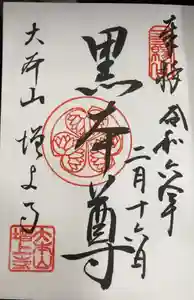 奉拝 令和六年
二月十六日
黒本尊
大本山 増上寺